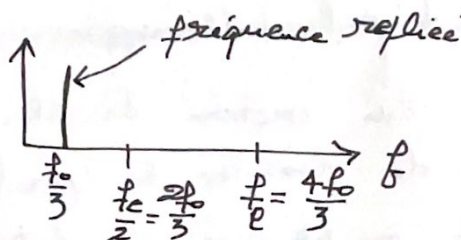 fréquence repliée
f₀/3
fe/2 = 2f₀/3
fe = 4f₀/3
f